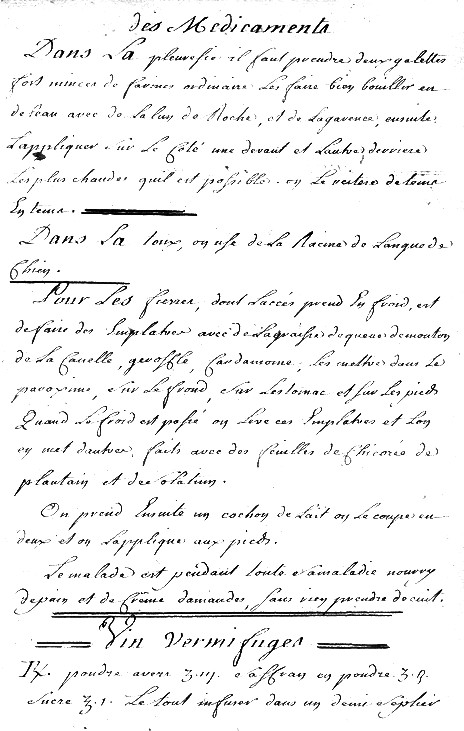 des Medicaments
Dans La pleuresie il faut prendre deux galettes
fort minces de farines ordinaire Les faire bien bouillir en
de Leau avec de Lalun de Roche, et de Lagarence, ensuite
Lappliquer sur Le Côté une devant et Lautre, derriere
Les plus chaudes quil est possible. on Le reitere de tems
En tems.
Dans La toux, on use de La Racine de Langue de
Chien.
Pour Les fievres, dont Laccés prend En froid, est
de faire des Emplatres avec de La graisse de queue de mouton
de La Canelle, geroffle, Cardamome, Les mettre dans Le
paroxime, sur Le frond, sur Lestomac et sur Les pieds
Quand Le froid est passé on Leve ces Emplatres et Lon
en met dautres, faits avec des feuilles de Chicorée de
plantain et de Solatum.
On prend Ensuite un cochon de Lait on Le coupe en
deux et on Lapplique aux pieds.
Le malade est pendant toute sa maladie nourry
de pain et de Crême damandes, sans rien prendre de cuit.
Vin Vermifuges
poudre avers saffran en poudre
sucre Le tout infuser dans un demi Septier